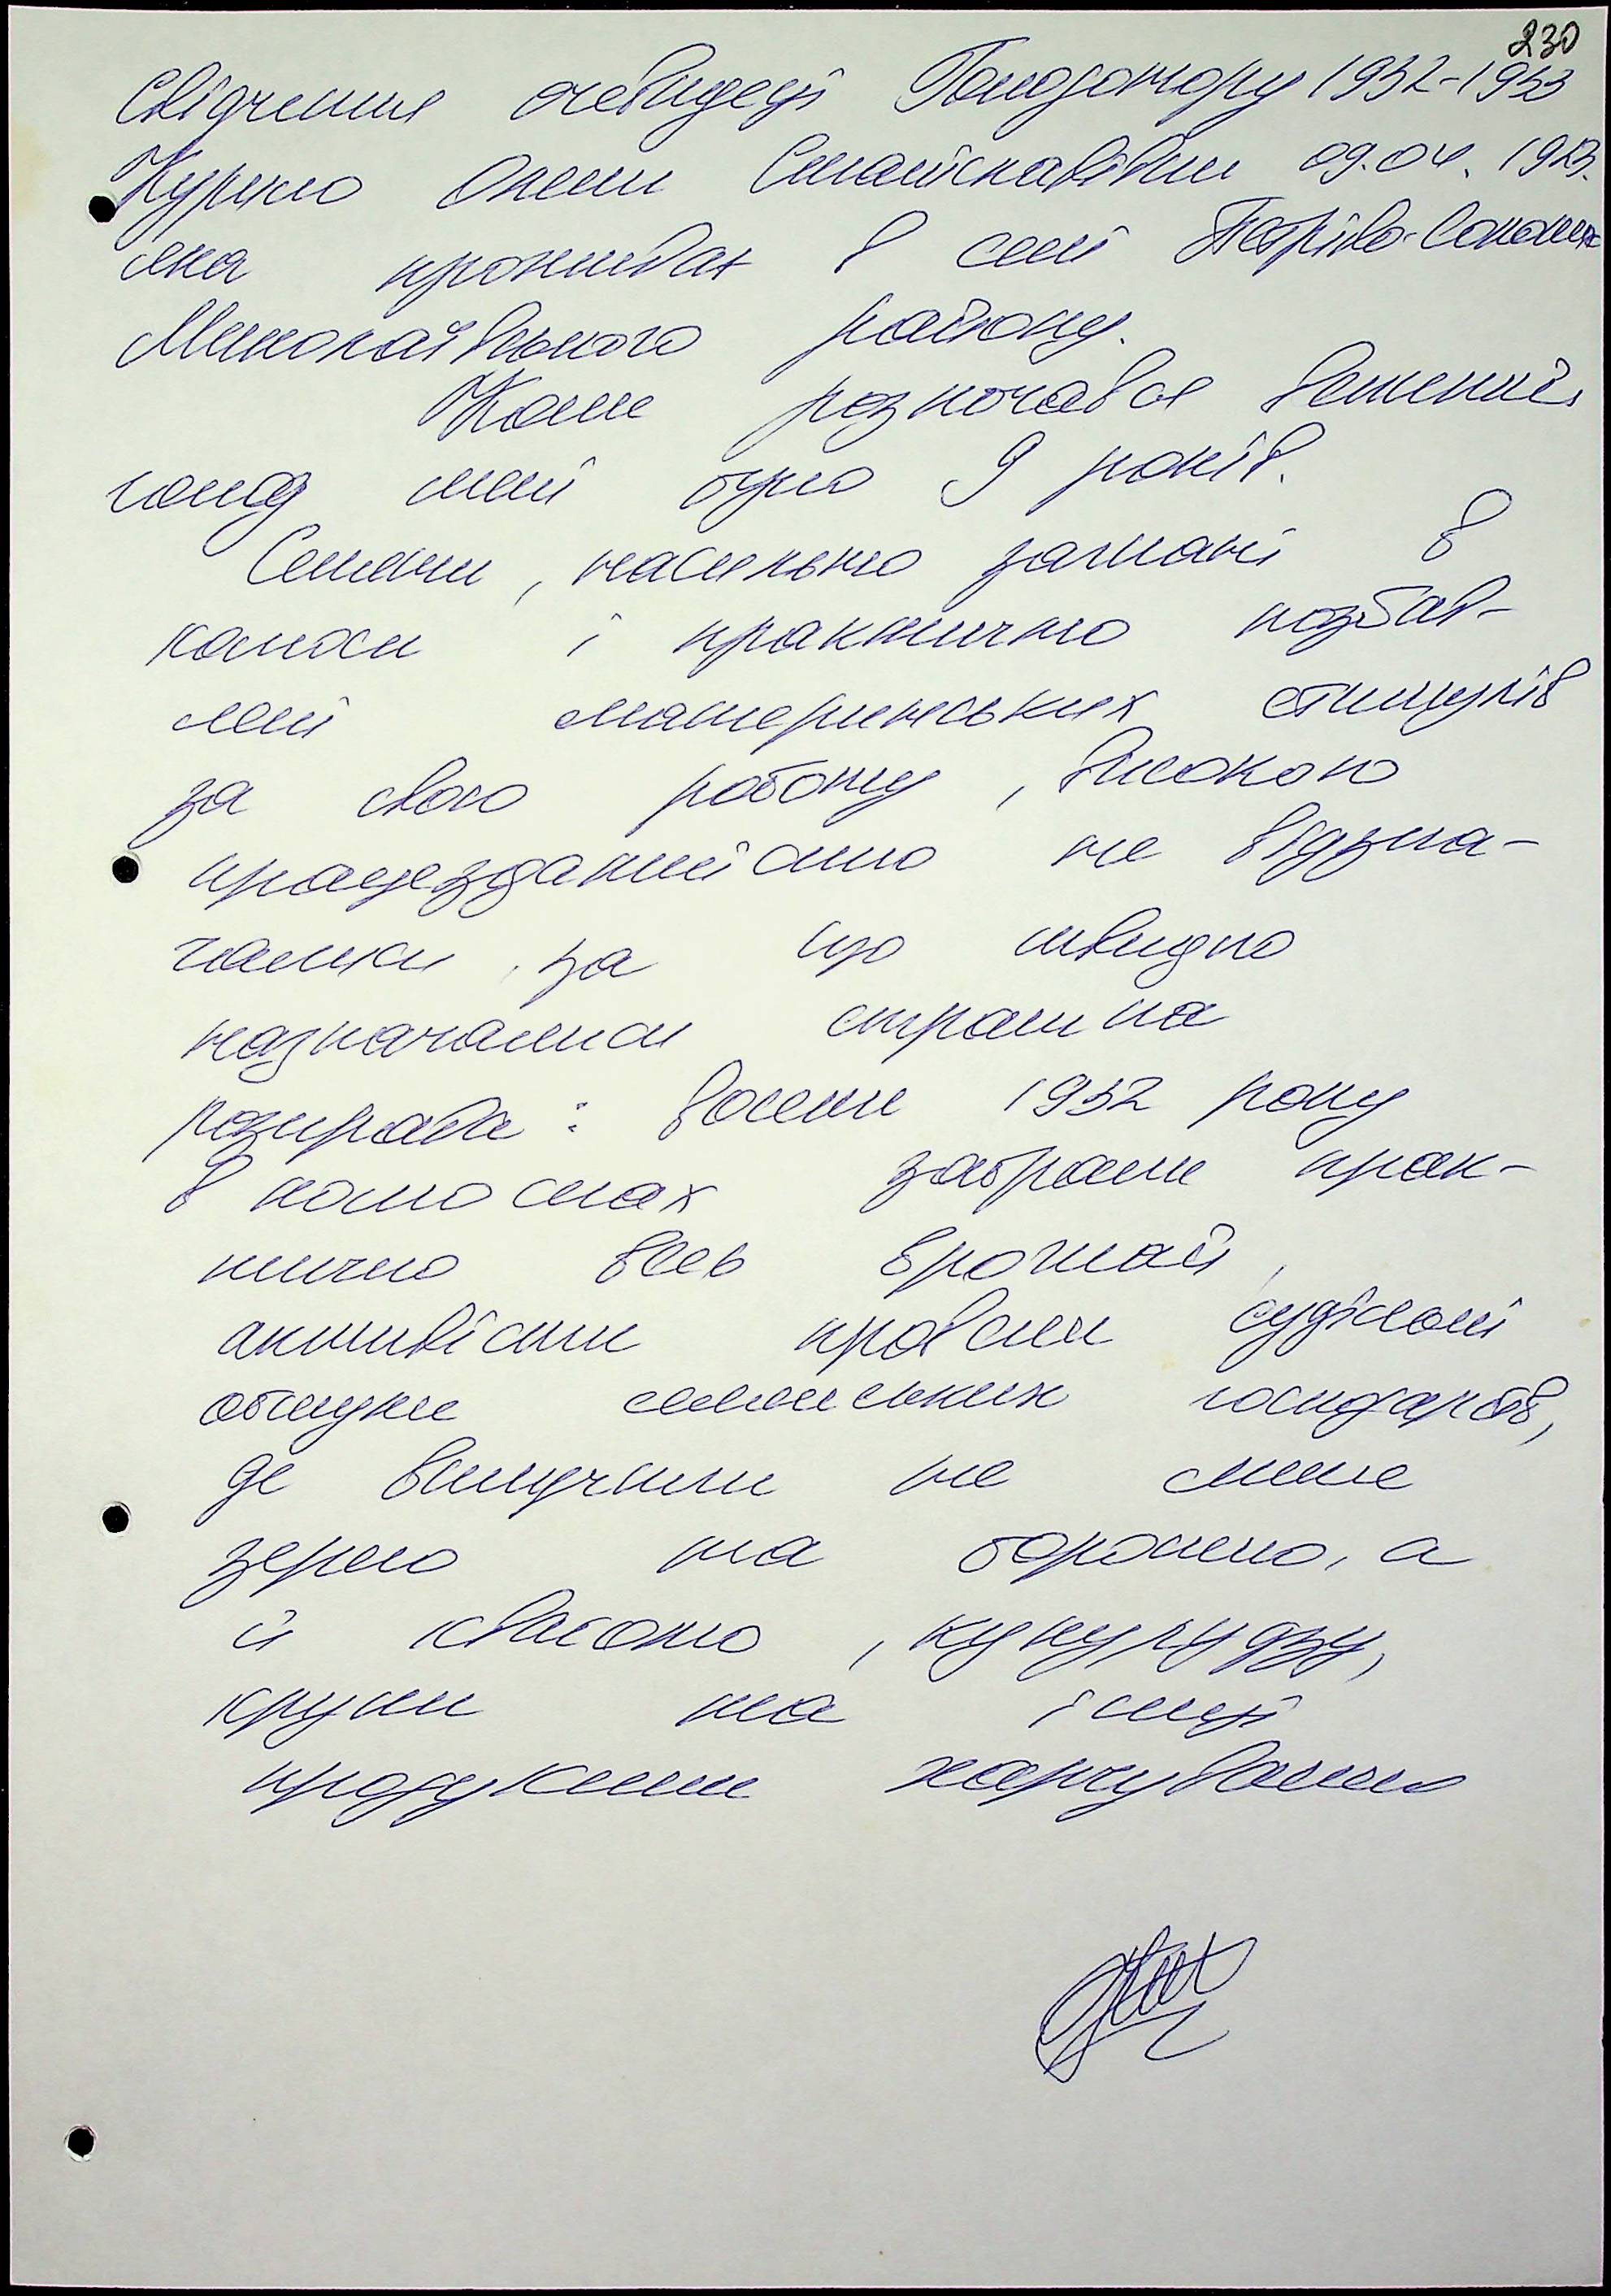 230
Свідчення очевидеці Голодомору 1932-1933
Курило Олени Станіславівни 09.04.1923.
яка проживає в селі
Миколаївського району.
Коли розпочався великий
голод мені було 9 років.
Селяни, насильно загнані в
колгосп і практично позбав-
лені материнських стимулів
за свою роботу, високою
працездатністю не відзна-
чались, за що швидко
назначалися страшна
розправа: восени 1932 року
в колгоспах забрали прак-
тично весь врожай,
активісти провели суцільні
обшуки селянських господарств,
де вилучали не лише
зерно та борошно, а
й квасолю, кукурудзу,
крупи та інші
продукти харчування